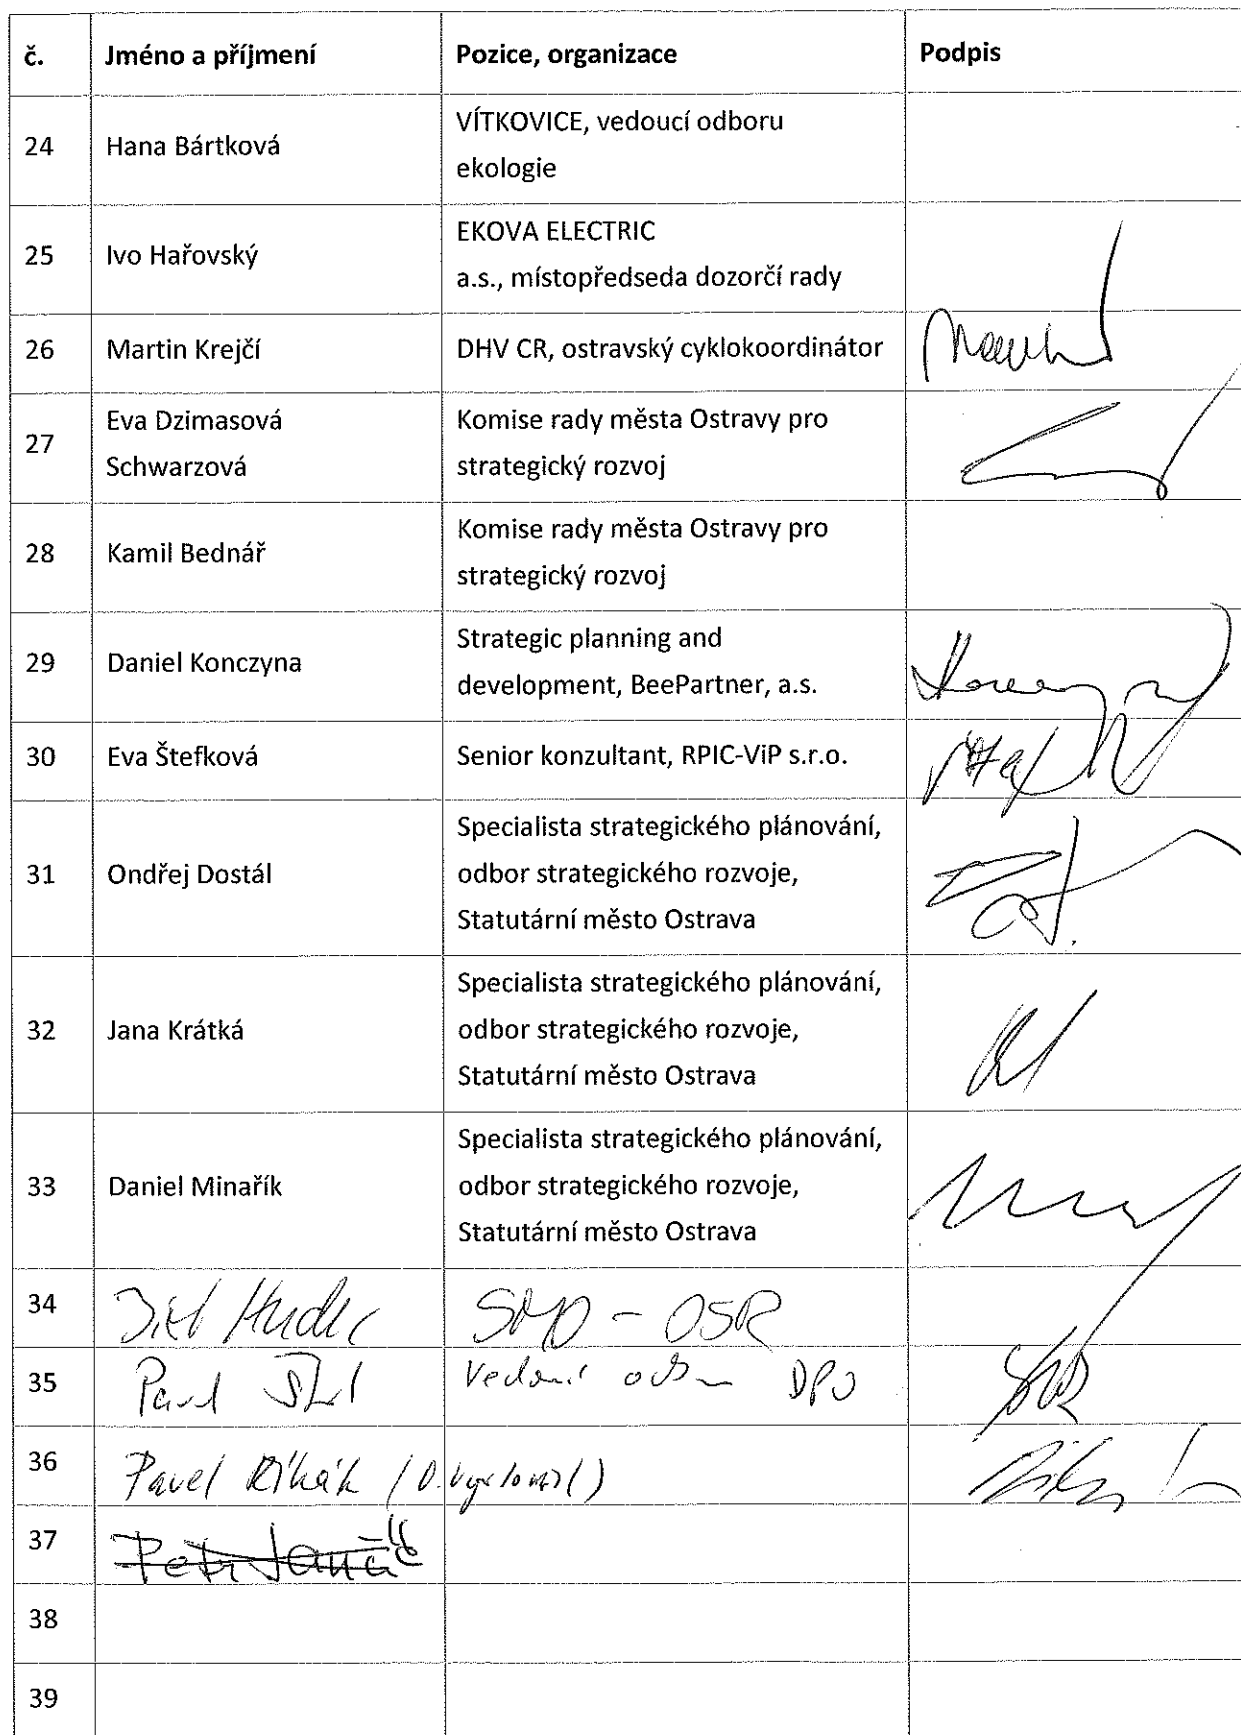 č. Jméno a příjmení Pozice, organizace Podpis
24 Hana Bártková VÍTKOVICE, vedoucí odboru
ekologie
25 Ivo Hařovský EKOVA ELECTRIC
a.s., místopředseda dozorčí rady
26 Martin Krejčí DHV CR, ostravský cyklokoordinátor
27 Eva Dzimasová
Schwarzová
Komise rady města Ostravy pro
strategický rozvoj
28 Kamil Bednář Komise rady města Ostravy pro
strategický rozvoj
29 Daniel Konczyna Strategic planning and
development, BeePartner, a.s.
30 Eva Štefková Senior konzultant, RPIC-ViP s.r.o.
31 Ondřej Dostál Specialista strategického plánování,
odbor strategického rozvoje,
Statutární město Ostrava
32 Jana Krátká Specialista strategického plánování,
odbor strategického rozvoje,
Statutární město Ostrava
33 Daniel Minařík Specialista strategického plánování,
odbor strategického rozvoje,
Statutární město Ostrava
34 SMO - OSR
35 Pavel DPO
36 Pavel
37 Petr
38
39